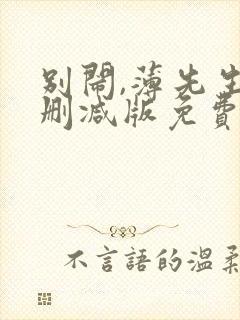 別鬧,薄先生
刪減版免費
不言語的溫柔